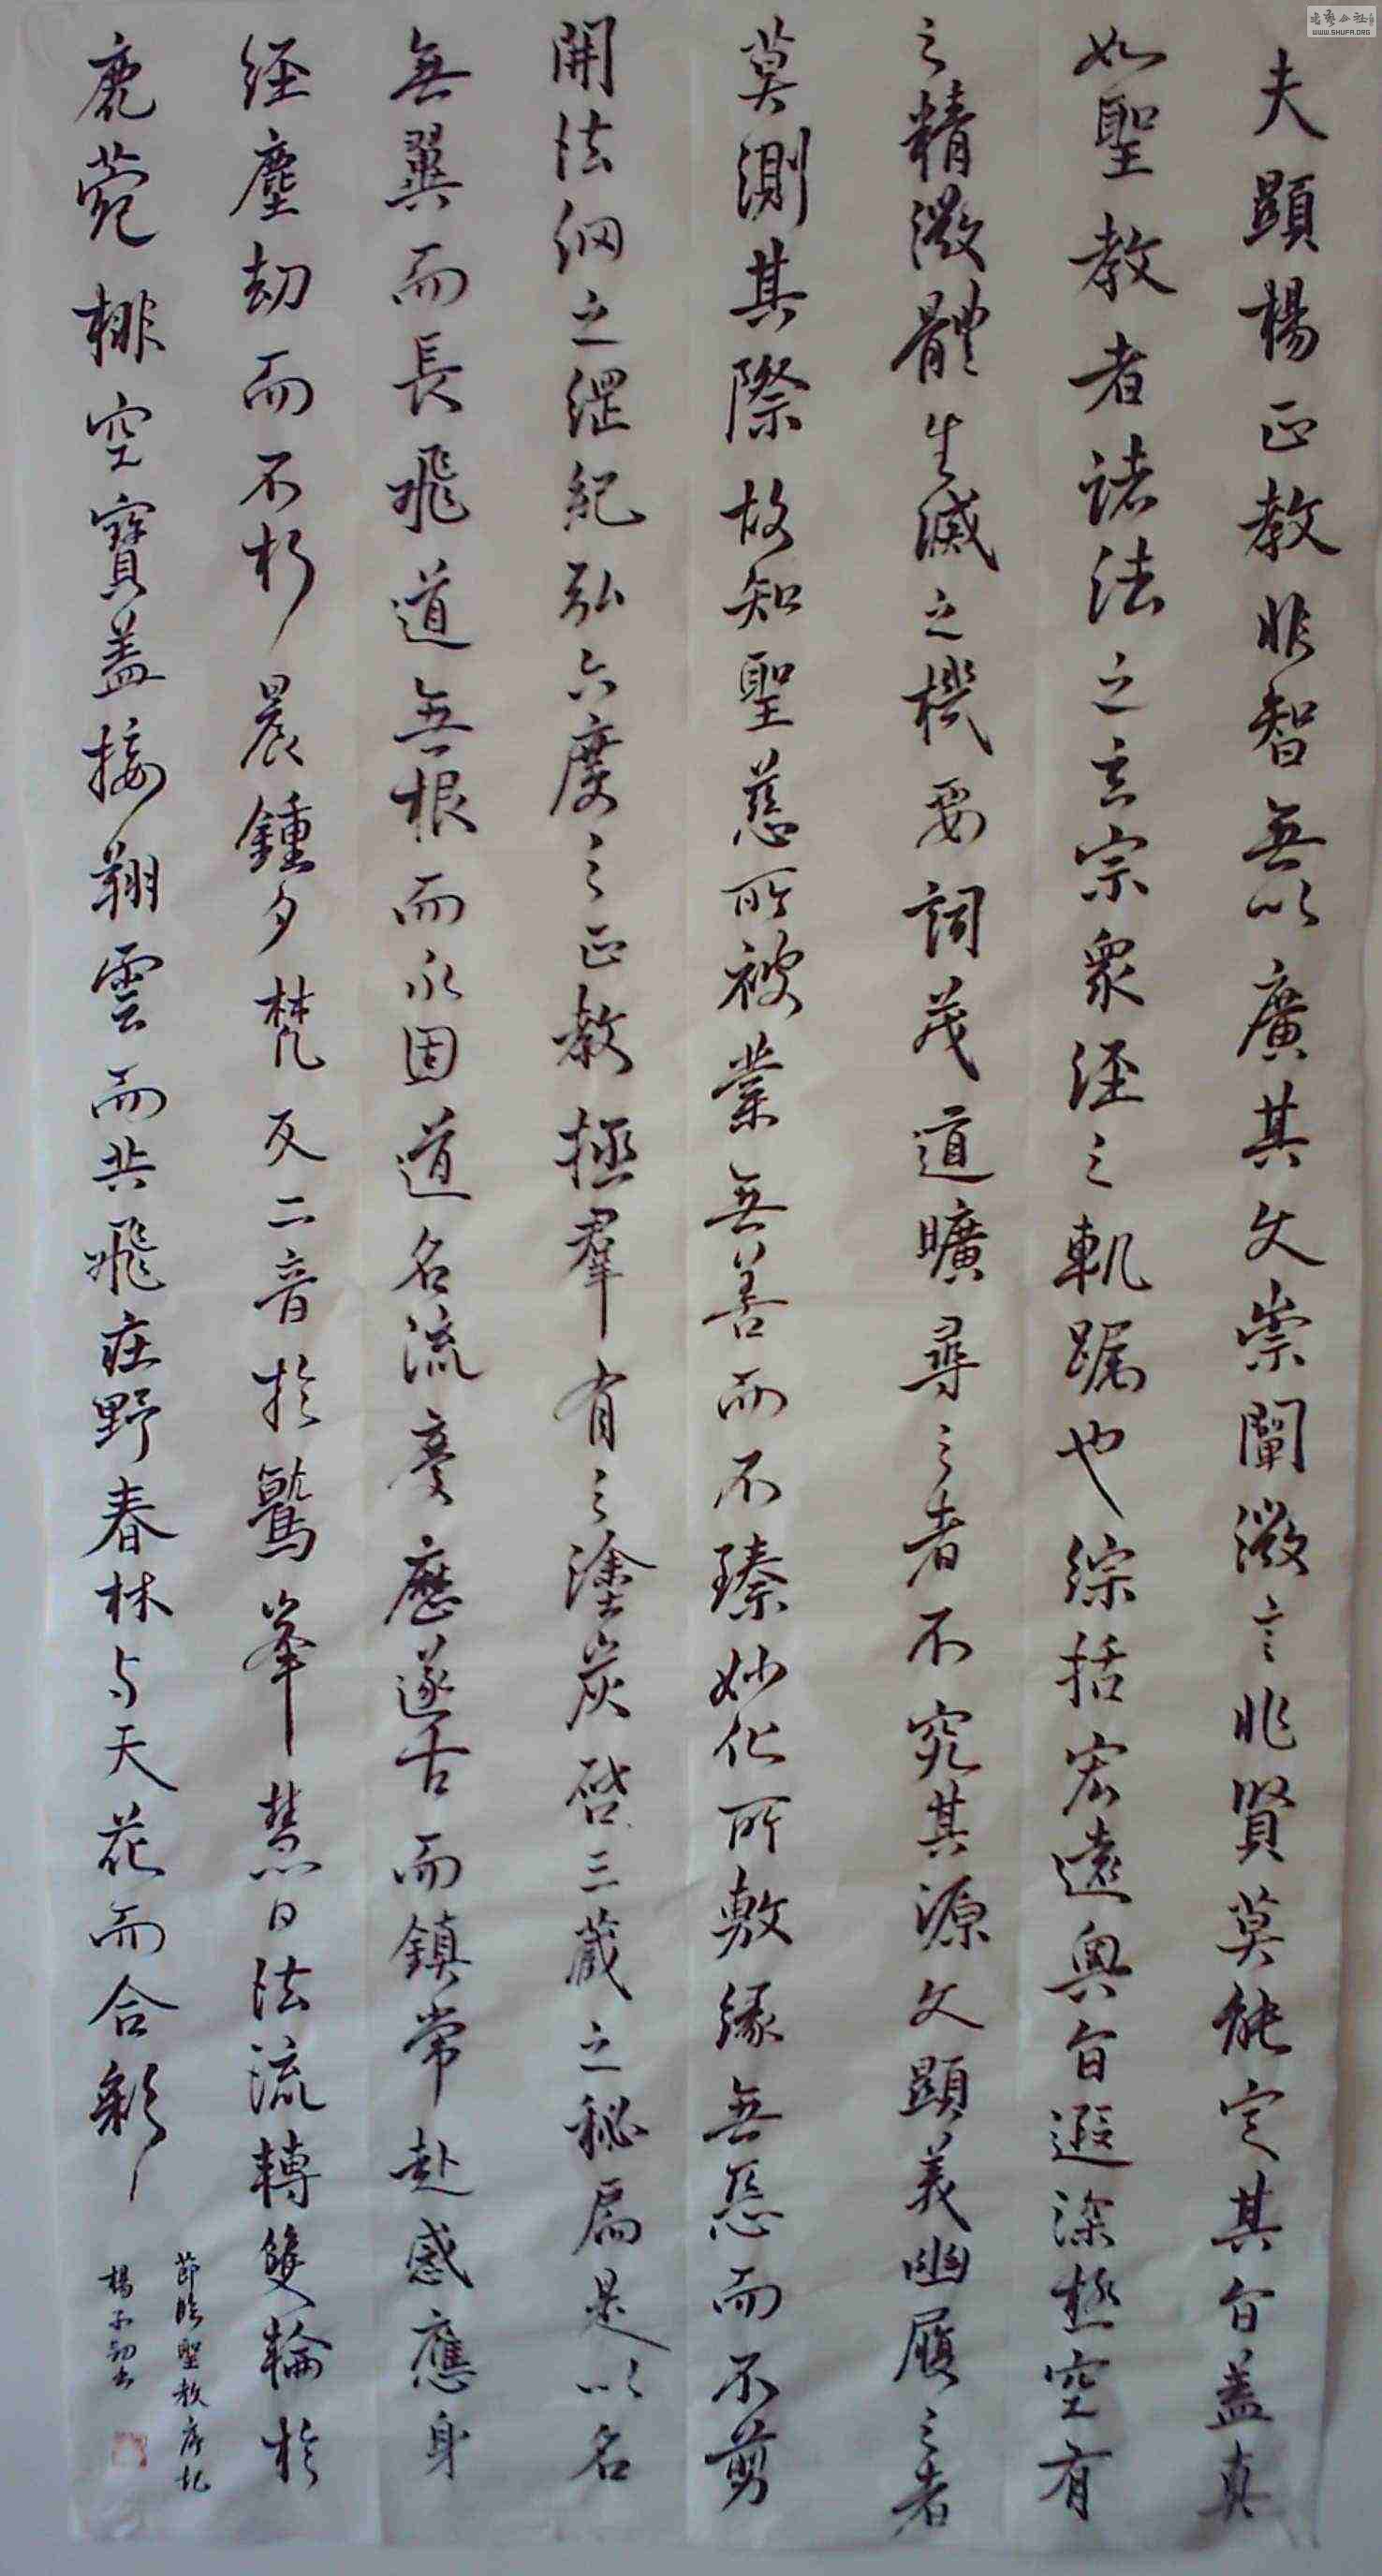 夫顯楊正教非智無以廣其文崇闡微言非賢莫能定其旨蓋真
如聖教者諸法之玄宗眾經之軌躅也綜括宏遠奧旨遐深極空有
之精微體生滅之機要詞茂道曠尋之者不究其源文顯義幽履之者
莫測其際故知聖慈所被業無善而不臻妙化所敷緣無惡而不剪
開法網之綱紀弘六度之正教拯群有之塗炭啓三藏之秘扃是以名
無翼而長飛道無根而永固道名流慶歷遂古而鎮常赴感應身
經塵劫而不朽晨鍾夕梵交二音於鷲峯慧日法流轉雙輪於
鹿菀排空寶蓋接翔雲而共飛莊野春林与天花而合彩
節臨聖教序記
楊
WWW.SHUFA.ORG